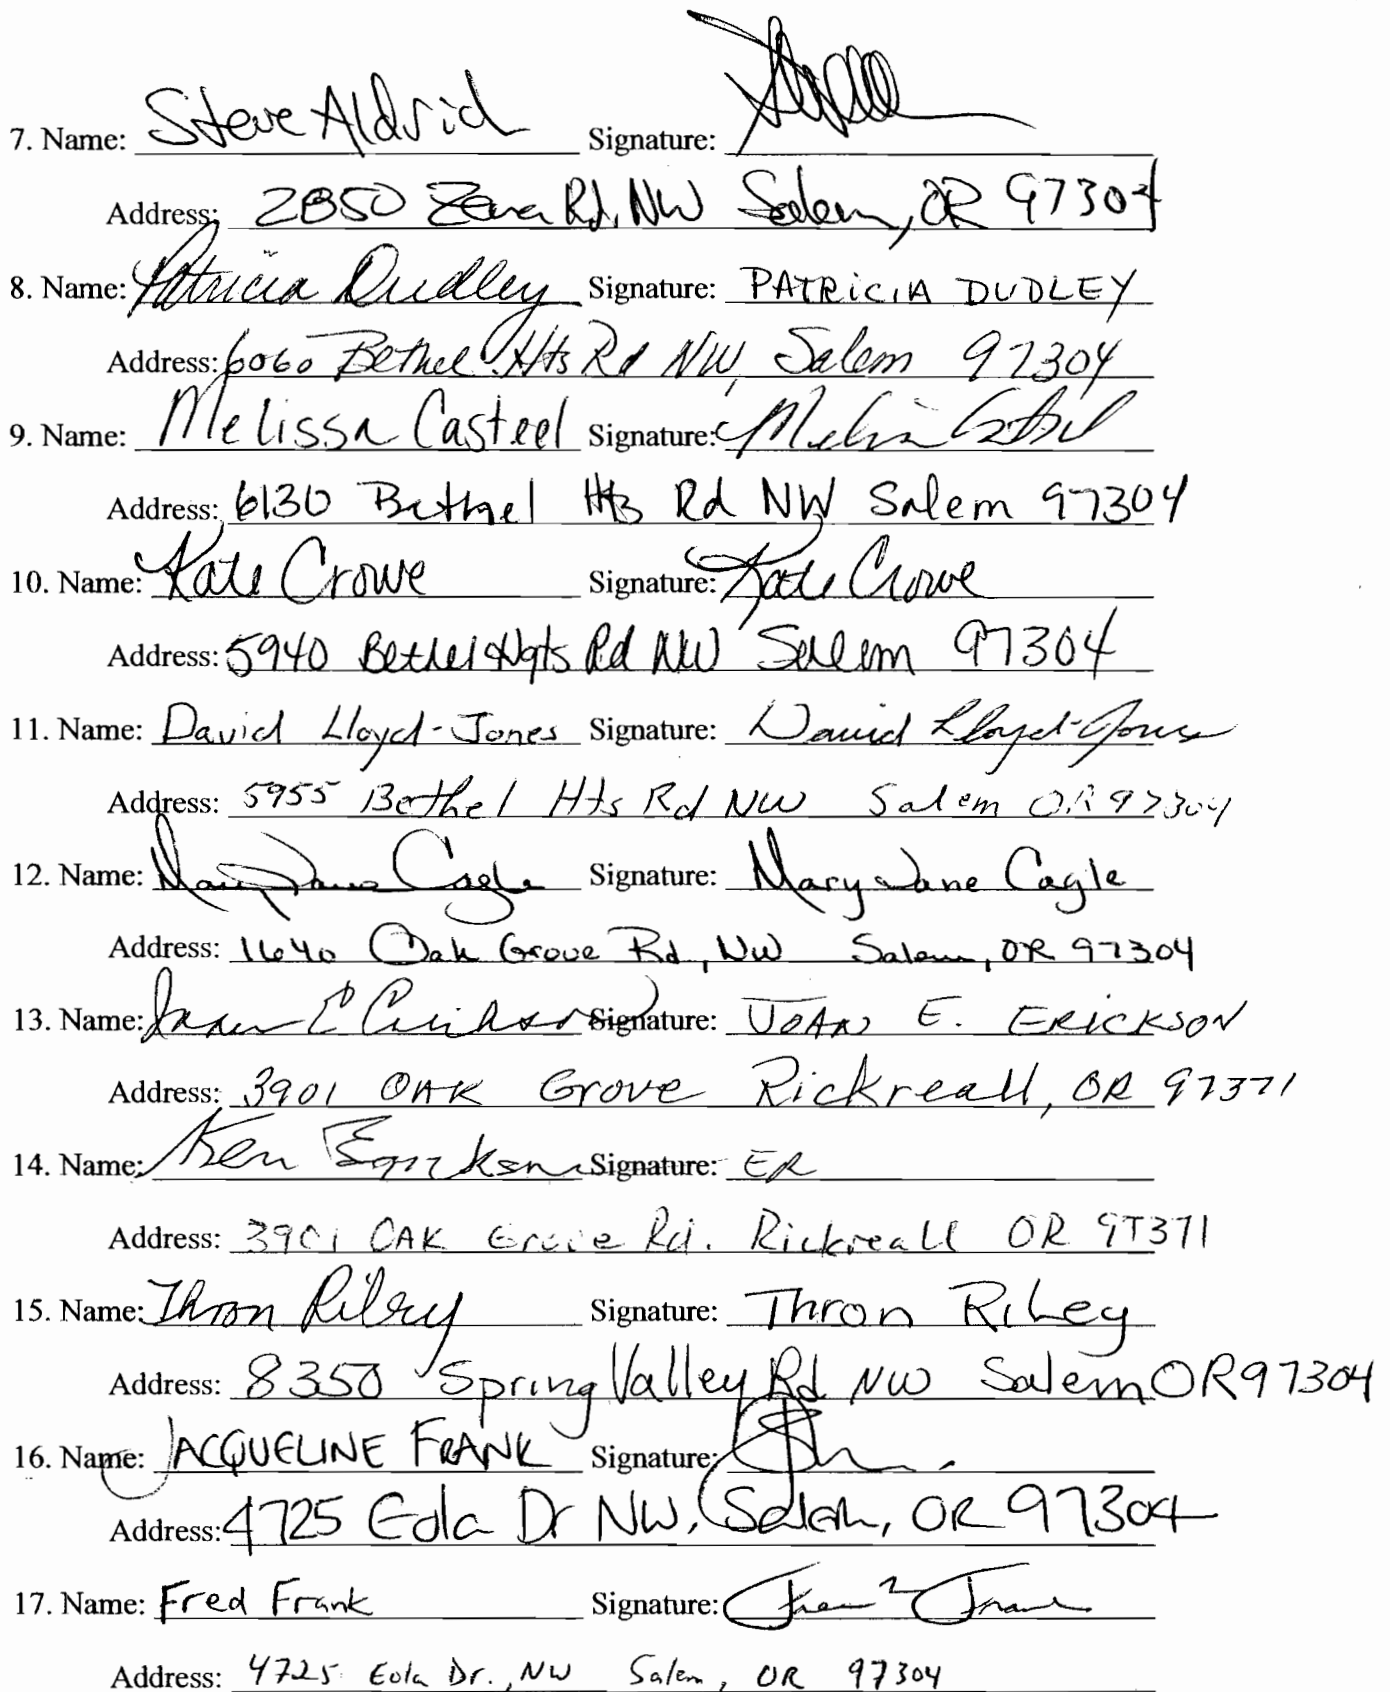 7. Name: Steve Aldrid Signature:
Address: 2850 Zena Rd, NW Salem, OR 97304
8. Name: Patricia Dudley Signature: PATRICIA DUDLEY
Address: 6060 Bethel Hts Rd NW, Salem 97304
9. Name: Melissa Casteel Signature: Melissa Casteel
Address: 6130 Bethel Hts Rd NW Salem 97304
10. Name: Kate Crowe Signature: Kate Crowe
Address: 5940 Bethel Hgts Rd NW Salem 97304
11. Name: David Lloyd-Jones Signature: David Lloyd-Jones
Address: 5955 Bethel Hts Rd NW Salem OR 97304
12. Name: Mary Jane Cagle Signature: Mary Jane Cagle
Address: 1640 Oak Grove Rd, NW Salem, OR 97304
13. Name: Joan E Erickson Signature: JOAN E. ERICKSON
Address: 3901 OAK Grove Rickreall, OR 97371
14. Name: Ken Signature: ER
Address: 3901 OAK Grove Rd. Rickreall OR 97371
15. Name: Thron Riley Signature: Thron Riley
Address: 8350 Spring Valley Rd NW Salem OR 97304
16. Name: JACQUELINE FRANK Signature:
Address: 4725 Eola Dr NW, Salem, OR 97304
17. Name: Fred Frank Signature:
Address: 4725 Eola Dr., NW Salem, OR 97304